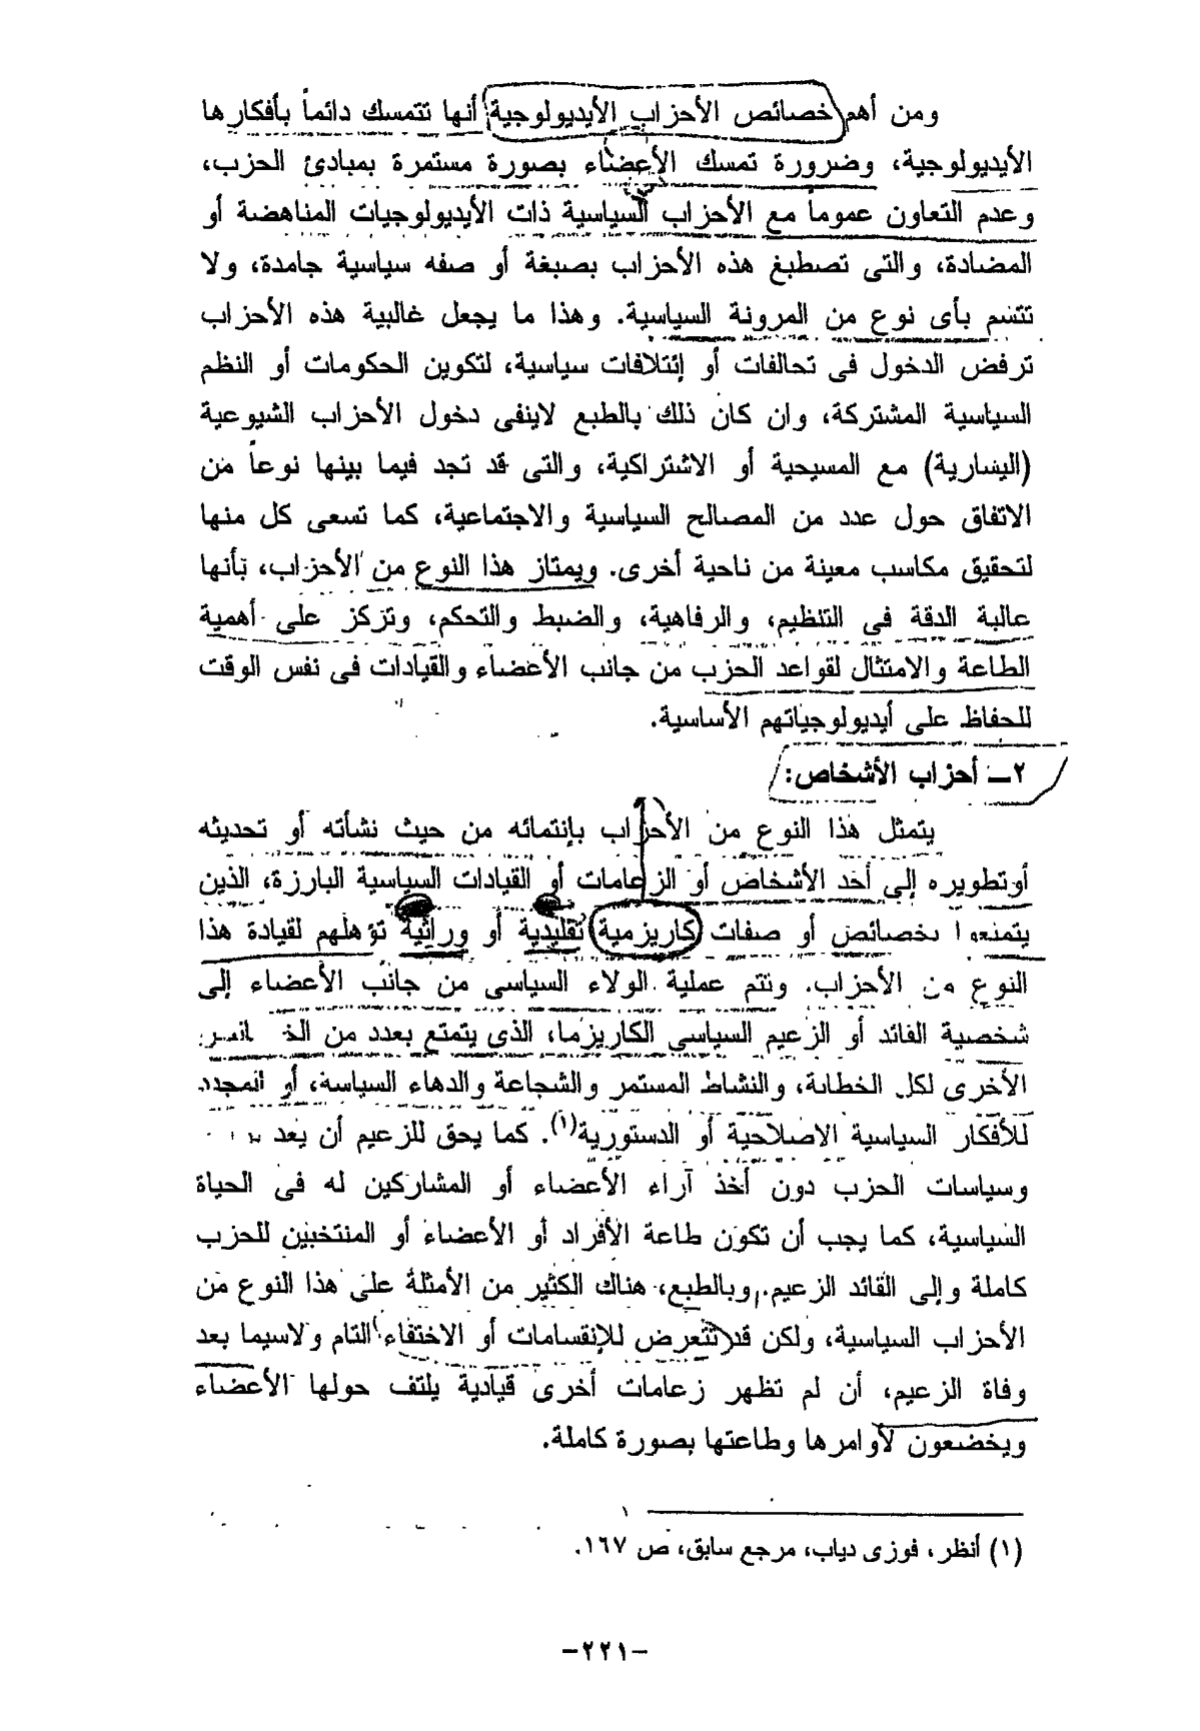 ومن أهم خصائص الأحزاب الأيديولوجية أنها تتمسك دائماً بأفكارها
الأيديولوجية، وضرورة تمسك الأعضاء بصورة مستمرة بمبادئ الحزب،
وعدم التعاون عموماً مع الأحزاب السياسية ذات الأيديولوجيات المناهضة أو
المضادة، والتى تصطبغ هذه الأحزاب بصبغة أو صفه سياسية جامدة، ولا
تتسم بأى نوع من المرونة السياسية. وهذا ما يجعل غالبية هذه الأحزاب
ترفض الدخول فى تحالفات أو إئتلافات سياسية، لتكوين الحكومات أو النظم
السياسية المشتركة، وان كان ذلك بالطبع لاينفى دخول الأحزاب الشيوعية
(اليسارية) مع المسيحية أو الاشتراكية، والتى قد تجد فيما بينها نوعاً من
الاتفاق حول عدد من المصالح السياسية والاجتماعية، كما تسعى كل منها
لتحقيق مكاسب معينة من ناحية أخرى. ويمتاز هذا النوع من الأحزاب، بأنها
عالية الدقة فى التنظيم، والرفاهية، والضبط والتحكم، وتركز على أهمية
الطاعة والامتثال لقواعد الحزب من جانب الأعضاء والقيادات فى نفس الوقت
للحفاظ على أيديولوجياتهم الأساسية.
٢ـ أحزاب الأشخاص:
يتمثل هذا النوع من الأحزاب بإنتمائه من حيث نشأته أو تحديثه
أوتطويره إلى أحد الأشخاص أو الزعامات أو القيادات السياسية البارزة، الذين
يتمتعوا بخصائص أو صفات كاريزمية تقليدية أو وراثية تؤهلهم لقيادة هذا
النوع من الأحزاب. وتتم عملية الولاء السياسى من جانب الأعضاء إلى
شخصية القائد أو الزعيم السياسى الكاريزما، الذى يتمتع بعدد من
الأخرى لكل الخطابة، والنشاط المستمر والشجاعة والدهاء السياسة، أو المجدد
للأفكار السياسية الاصلاحية أو الدستورية(١). كما يحق للزعيم أن يعد
وسياسات الحزب دون أخذ آراء الأعضاء أو المشاركين له فى الحياة
السياسية، كما يجب أن تكون طاعة الأفراد أو الأعضاء أو المنتخبين للحزب
كاملة وإلى القائد الزعيم. وبالطبع، هناك الكثير من الأمثلة على هذا النوع من
الأحزاب السياسية، ولكن قد تتعرض للإنقسامات أو الاختفاء التام ولاسيما بعد
وفاة الزعيم، أن لم تظهر زعامات أخرى قيادية يلتف حولها الأعضاء
ويخضعون لأوامرها وطاعتها بصورة كاملة.
(١) أنظر، فوزى دياب، مرجع سابق، ص ١٦٧.
-٢٢١-